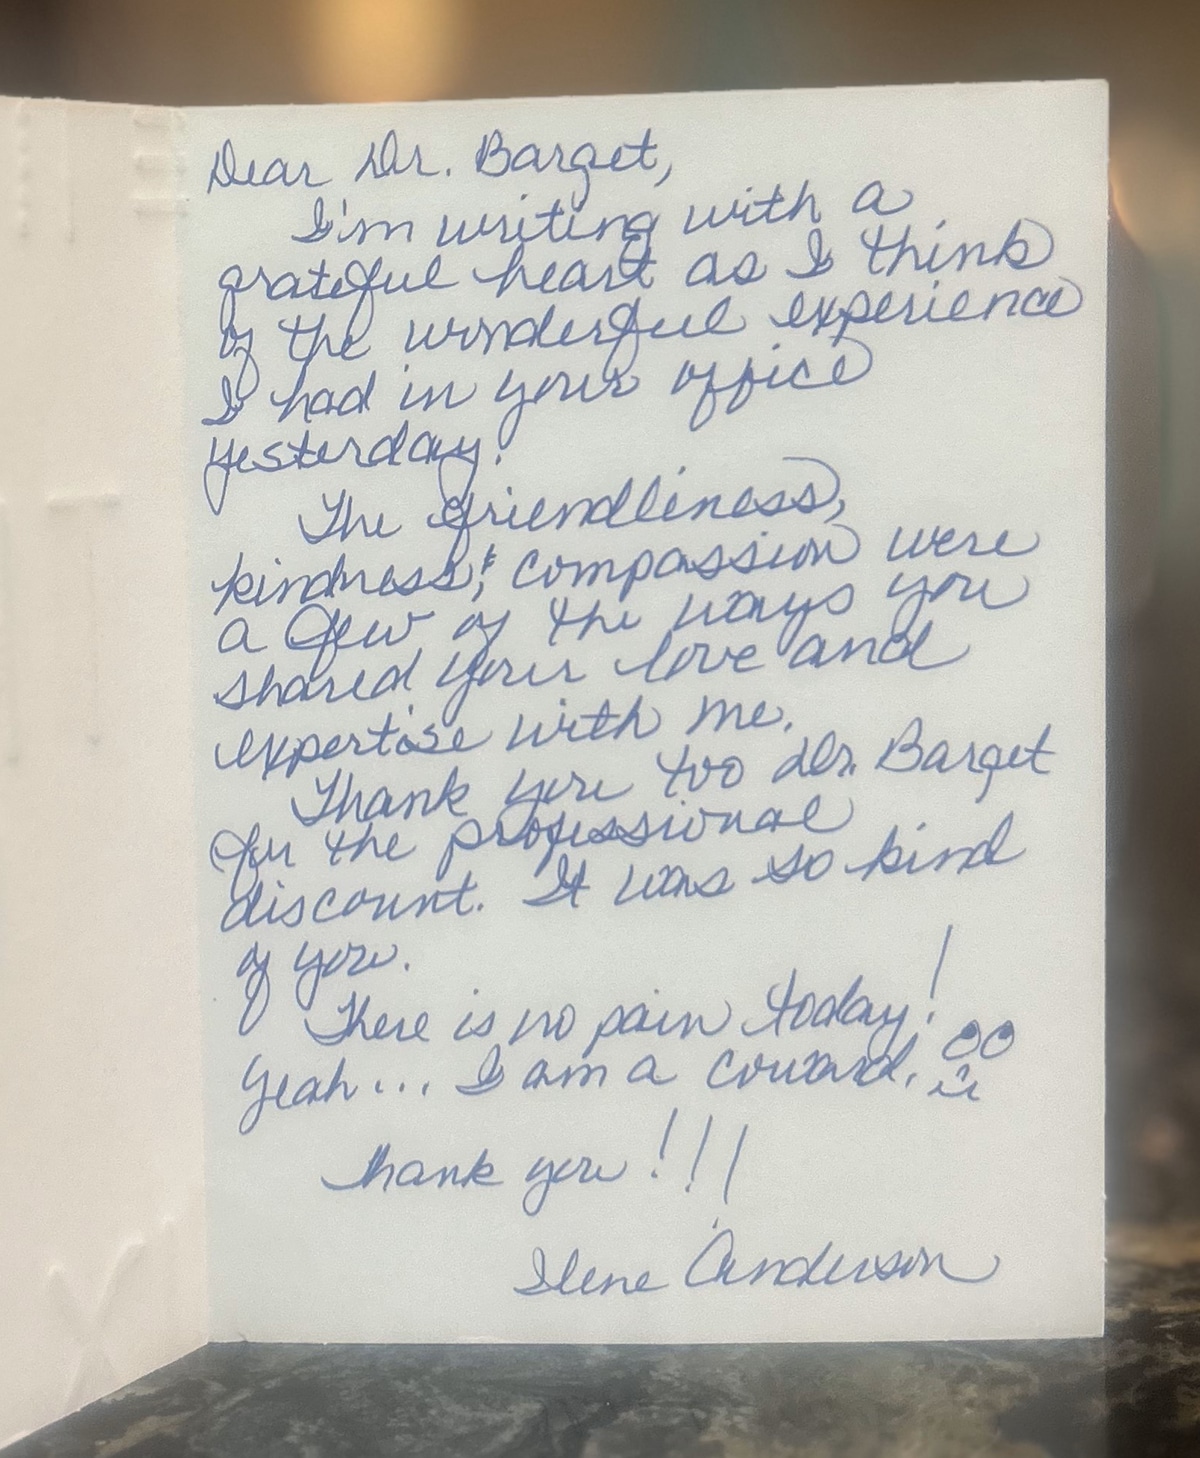 Dear Dr. Barget,
I'm writing with a
grateful heart as I think
of the wonderful experience
I had in your office
yesterday.
The friendliness,
kindness, & compassion were
a few of the ways you
shared your love and
expertise with me.
Thank you too Dr. Barget
for the professional
discount. It was so kind
of you.
There is no pain today!
Yeah... I am a coward.
Thank you!!!
Ilene Anderson